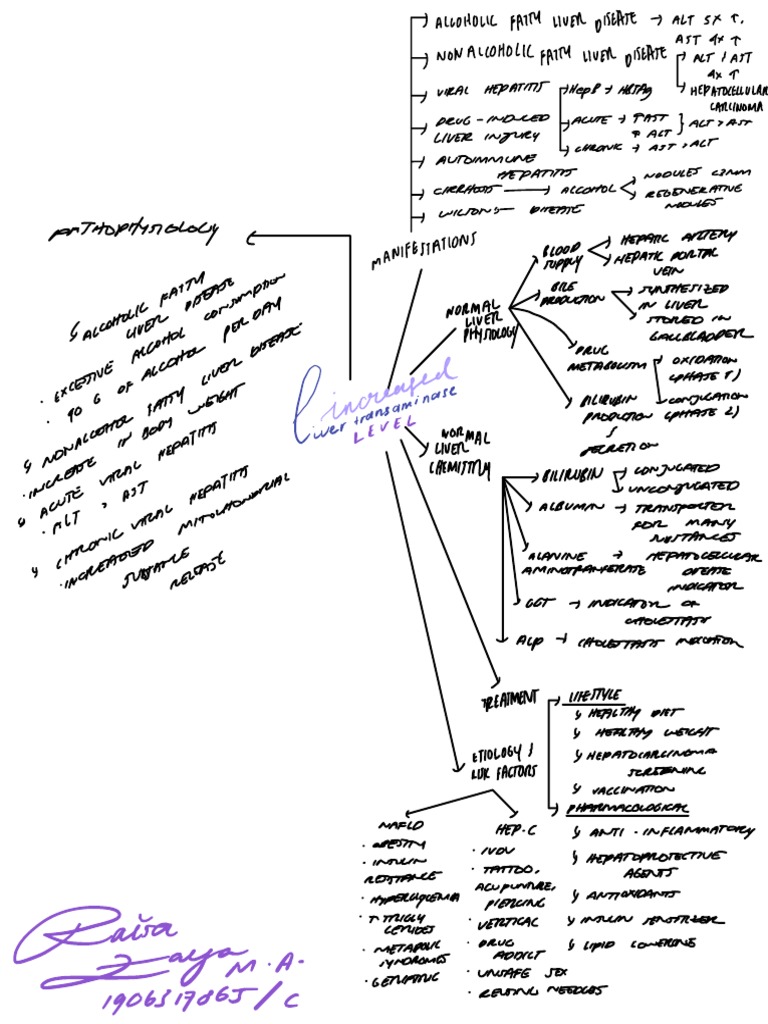 ALCOHOLIC FATTY LIVER DISEASE → ALT 5X ↑,
AST 4X ↑
NONALCOHOLIC FATTY LIVER DISEASE
ALT > AST
4X ↑
HEPATOCELLULAR
CARCINOMA
VIRAL HEPATITIS
HepB → HBSAg
ACUTE → ↑ AST
↑ ALT } ALT > AST
CHRONIC → AST > ALT
DRUG-INDUCED
LIVER INJURY
AUTOIMMUNE
HEPATITIS
CIRRHOSIS → ALCOHOL
NODULES <3MM
REGENERATIVE
NODULES
WILSON'S DISEASE
MANIFESTATIONS
PATHOPHYSIOLOGY
↳ ALCOHOLIC FATTY
LIVER DISEASE
· EXCESSIVE ALCOHOL CONSUMPTION
· 40 G OF ALCOHOL PER DAY
↳ NONALCOHOL FATTY LIVER DISEASE
· INCREASE IN BODY WEIGHT
↳ ACUTE VIRAL HEPATITIS
· ALT > AST
↳ CHRONIC VIRAL HEPATITIS
· INCREASED MITOCHONDRIAL
SUBSTANCE
RELEASE
increased
liver transaminase
LEVEL
NORMAL
LIVER
PHYSIOLOGY
BLOOD
SUPPLY
HEPATIC ARTERY
HEPATIC PORTAL
VEIN
BILE
PRODUCTION
SYNTHESIZED
IN LIVER
STORED IN
GALLBLADDER
DRUG
METABOLISM
OXIDATION
(PHASE 1)
CONJUGATION
(PHASE 2)
BILIRUBIN
PRODUCTION
&
SECRETION
NORMAL
LIVER
CHEMISTRY
BILIRUBIN
CONJUGATED
UNCONJUGATED
ALBUMIN → TRANSPORTER
FOR MANY
SUBSTANCES
ALANINE
AMINOTRANFERATE
→ HEPATOCELLULAR
INDICATOR
GGT → INDICATOR OF
CHOLESTASIS
ALP → CHOLESTASIS INDICATION
TREATMENT
LIFESTYLE
↳ HEALTHY DIET
↳ HEALTHY WEIGHT
↳ HEPATOCARCINOMA
SCREENING
↳ VACCINATION
PHARMACOLOGICAL
↳ ANTI-INFLAMMATORY
↳ HEPATOPROTECTIVE
AGENTS
↳ ANTIOXIDANTS
↳ INSULIN SENSITIZER
↳ LIPID LOWERING
ETIOLOGY &
RISK FACTORS
NAFLD
· OBESITY
· INSULIN
RESISTANCE
· HYPERGLYCEMIA
· ↑ TRIGLY
CERIDES
· METABOLIC
SYNDROMES
· GERIATRIC
HEP-C
· IVDU
· TATTOO,
ACUPUNTURE,
PIERCING
· VERTICAL
· DRUG
ADDICT
· UNSAFE SEX
· REUSING NEEDLES
Raisa
M.A.
1906317865/C